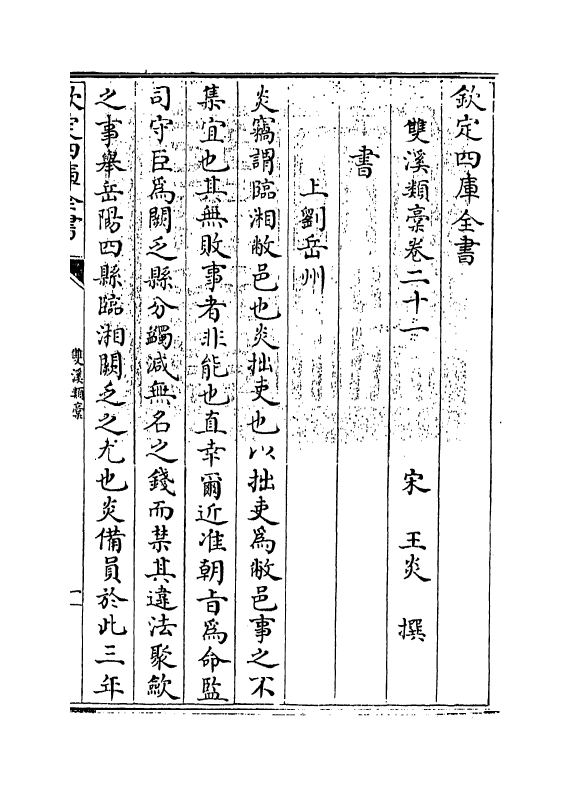 欽定四庫全書
雙溪類稾卷二十一
宋 王炎 撰
書
上劉岳州
炎竊謂臨湘敝邑也炎拙吏也以拙吏為敝邑事之不
集宜也其無敗事者非能也直幸爾近准朝㫖為命監
司守臣為闕乏縣分蠲減無名之錢而禁其違法聚歛
之事舉岳陽四縣臨湘闕乏之尤也炎備員於此三年
欽定四庫全書
雙溪類稾
一